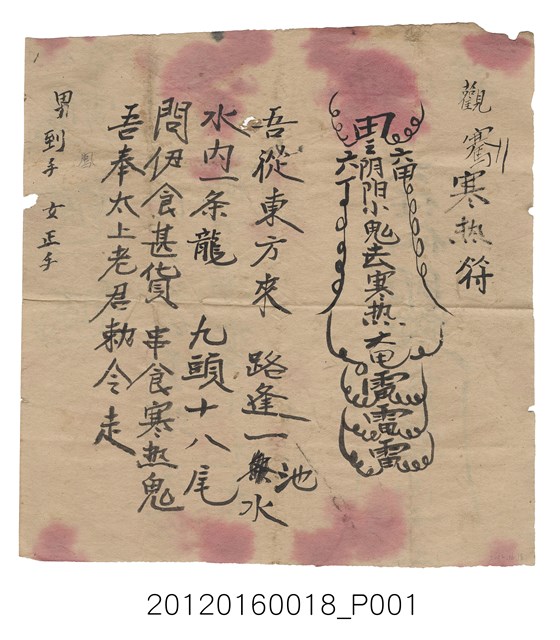 觀寒热符
六甲
阴阳小鬼去寒热
雷雷雷
六丁
吾從東方來 路逢一池水
水内一条龍 九頭十八尾
問伊食甚貨 串食寒热鬼
吾奉太上老君勅令走
男到手 女正手
20120160018_P001